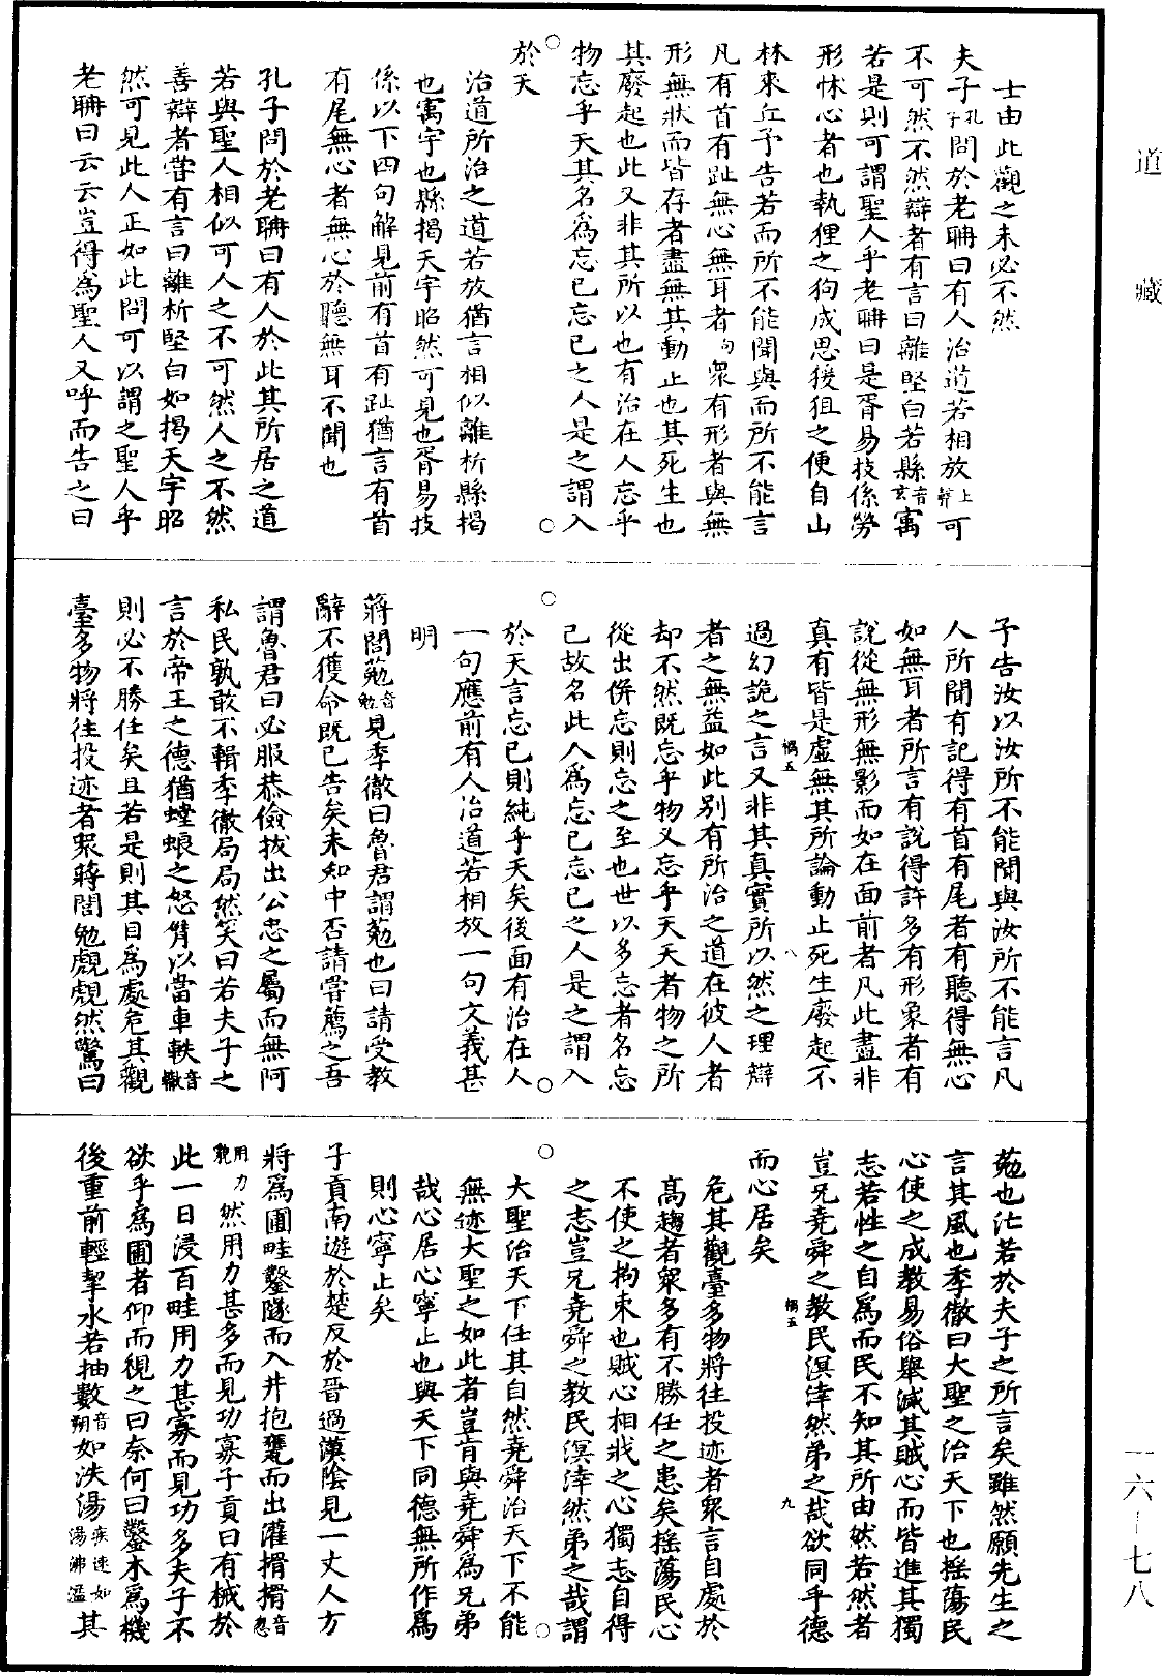 道藏
士由此觀之未必不然
夫子孔子問於老聃曰有人治道若相放上聲可
不可然不然辯者有言曰離堅白若縣音玄寓
若是則可謂聖人乎老聃曰是胥易技係勞
形怵心者也執狸之狗成思猨狙之便自山
林來丘予告若而所不能聞與而所不能言
凡有首有趾無心無耳者句眾有形者與無
形無狀而皆存者盡無其動止也其死生也
其廢起也此又非其所以也有治在人忘乎
物忘乎天其名爲忘已忘已之人是之謂入
於天
治道所治之道若放猶言相似離析縣揭
也寓宇也縣揭天宇昭然可見也胥易技
係以下四句解見前有首有趾猶言有首
有尾無心者無心於聽無耳不聞也
孔子問於老聃曰有人於此其所居之道
若與聖人相似可人之不可然人之不然
善辯者甞有言曰離析堅白如揭天宇昭
然可見此人正如此問可以謂之聖人乎
老聃曰云云豈得爲聖人又呼而告之曰
子告汝以汝所不能聞與汝所不能言凡
人所聞有記得有首有尾者有聽得無心
如無耳者所言有說得許多有形象者有
說從無形無影而如在面前者凡此盡非
真有皆是虛無其所論動止死生廢起不
過幻詭之言又非其真實所以然之理辯
者之無益如此别有所治之道在彼人者
却不然既忘乎物又忘乎天天者物之所
從出併忘則忘之至也世以多忘者名忘
己故名此人爲忘已忘已之人是之謂入
於天言忘已則純乎天矣後面有治在人
一句應前有人治道若相放一句文義甚
明
蔣閭葂音勉見季徹曰魯君謂葂也曰請受教
辭不獲命既已告矣未知中否請甞薦之吾
謂魯君曰必服恭儉拔出公忠之屬而無阿
私民孰敢不輯季徹局局然笑曰若夫子之
言於帝王之德猶螳蜋之怒臂以當車軼音轍
則必不勝任矣且若是則其自爲處危其觀
臺多物將往投迹者眾蔣閭勉覤覤然驚曰
葂也汒若於夫子之所言矣雖然願先生之
言其風也季徹曰大聖之治天下也摇蕩民
心使之成教易俗舉滅其賊心而皆進其獨
志若性之自爲而民不知其所由然若然者
豈兄堯舜之教民溟涬然弟之哉欲同乎德
而心居矣
危其觀臺多物將往投迹者眾言自處於
高趨者眾多有不勝任之患矣摇蕩民心
不使之拘束也賊心相戕之心獨志自得
之志豈兄堯舜之教民溟涬然弟之哉謂
大聖治天下任其自然堯舜治天下不能
無迹大聖之如此者豈肯與堯舜爲兄弟
哉心居心寧止也與天下同德無所作爲
則心寧止矣
子貢南遊於楚反於晉過漢陰見一丈人方
將爲圃畦鑿隧而入井抱甕而出灌搰搰音忽
用力貌然用力甚多而見功寡子貢曰有械於
此一日浸百畦用力甚寡而見功多夫子不
欲乎爲圃者仰而視之曰奈何曰鑿木爲機
後重前輕挈水若抽數音朔如泆湯疾速如湯沸溢其
一六—七八